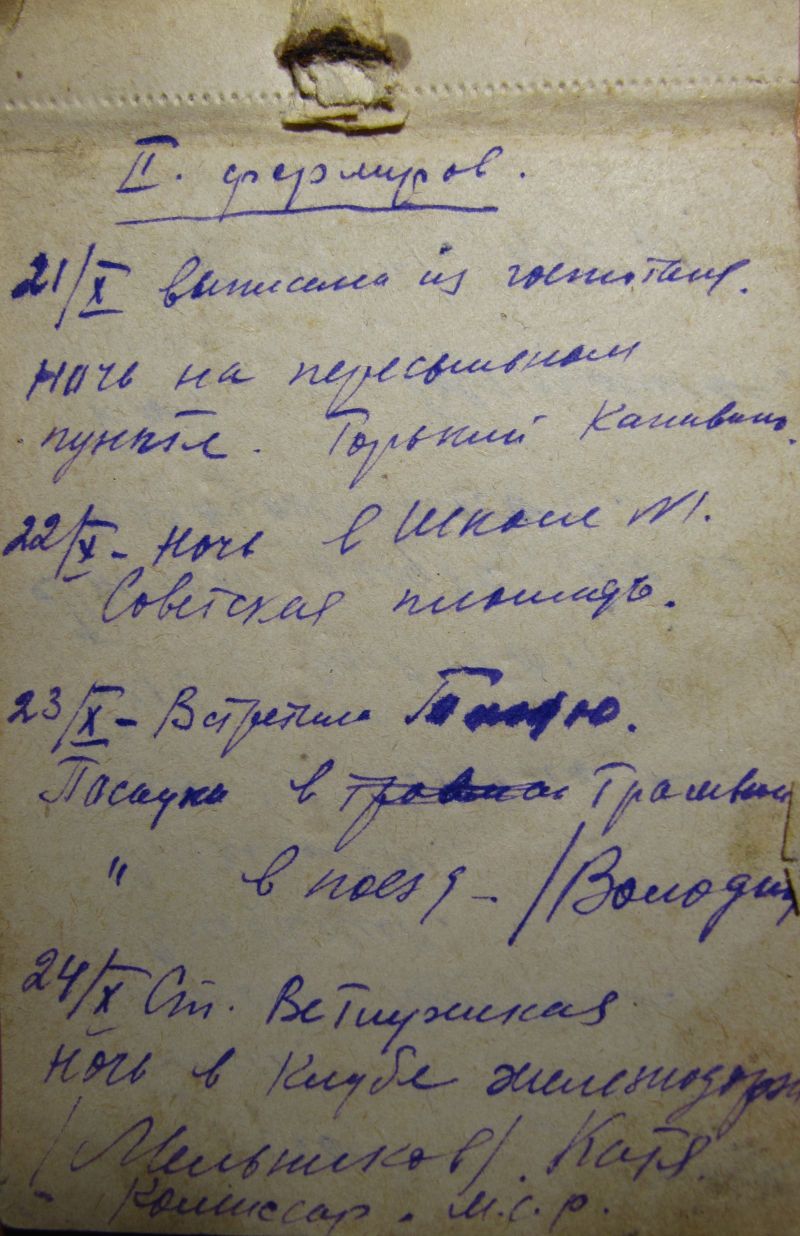 II. формиров.
21/X выписана из госпиталя.
Ночь на пересыльном
пункте. Горький Канавино.
22/X - Ночь в Школе №1.
Советская площадь.
23/X - Встретила
Посадка в трамвай Трамвай
" в поезд - /Володя
24/X Ст. Ветлужская
Ночь в Клубе железнодорж
/Мельников/. Катя.
Комиссар. м.с.р.